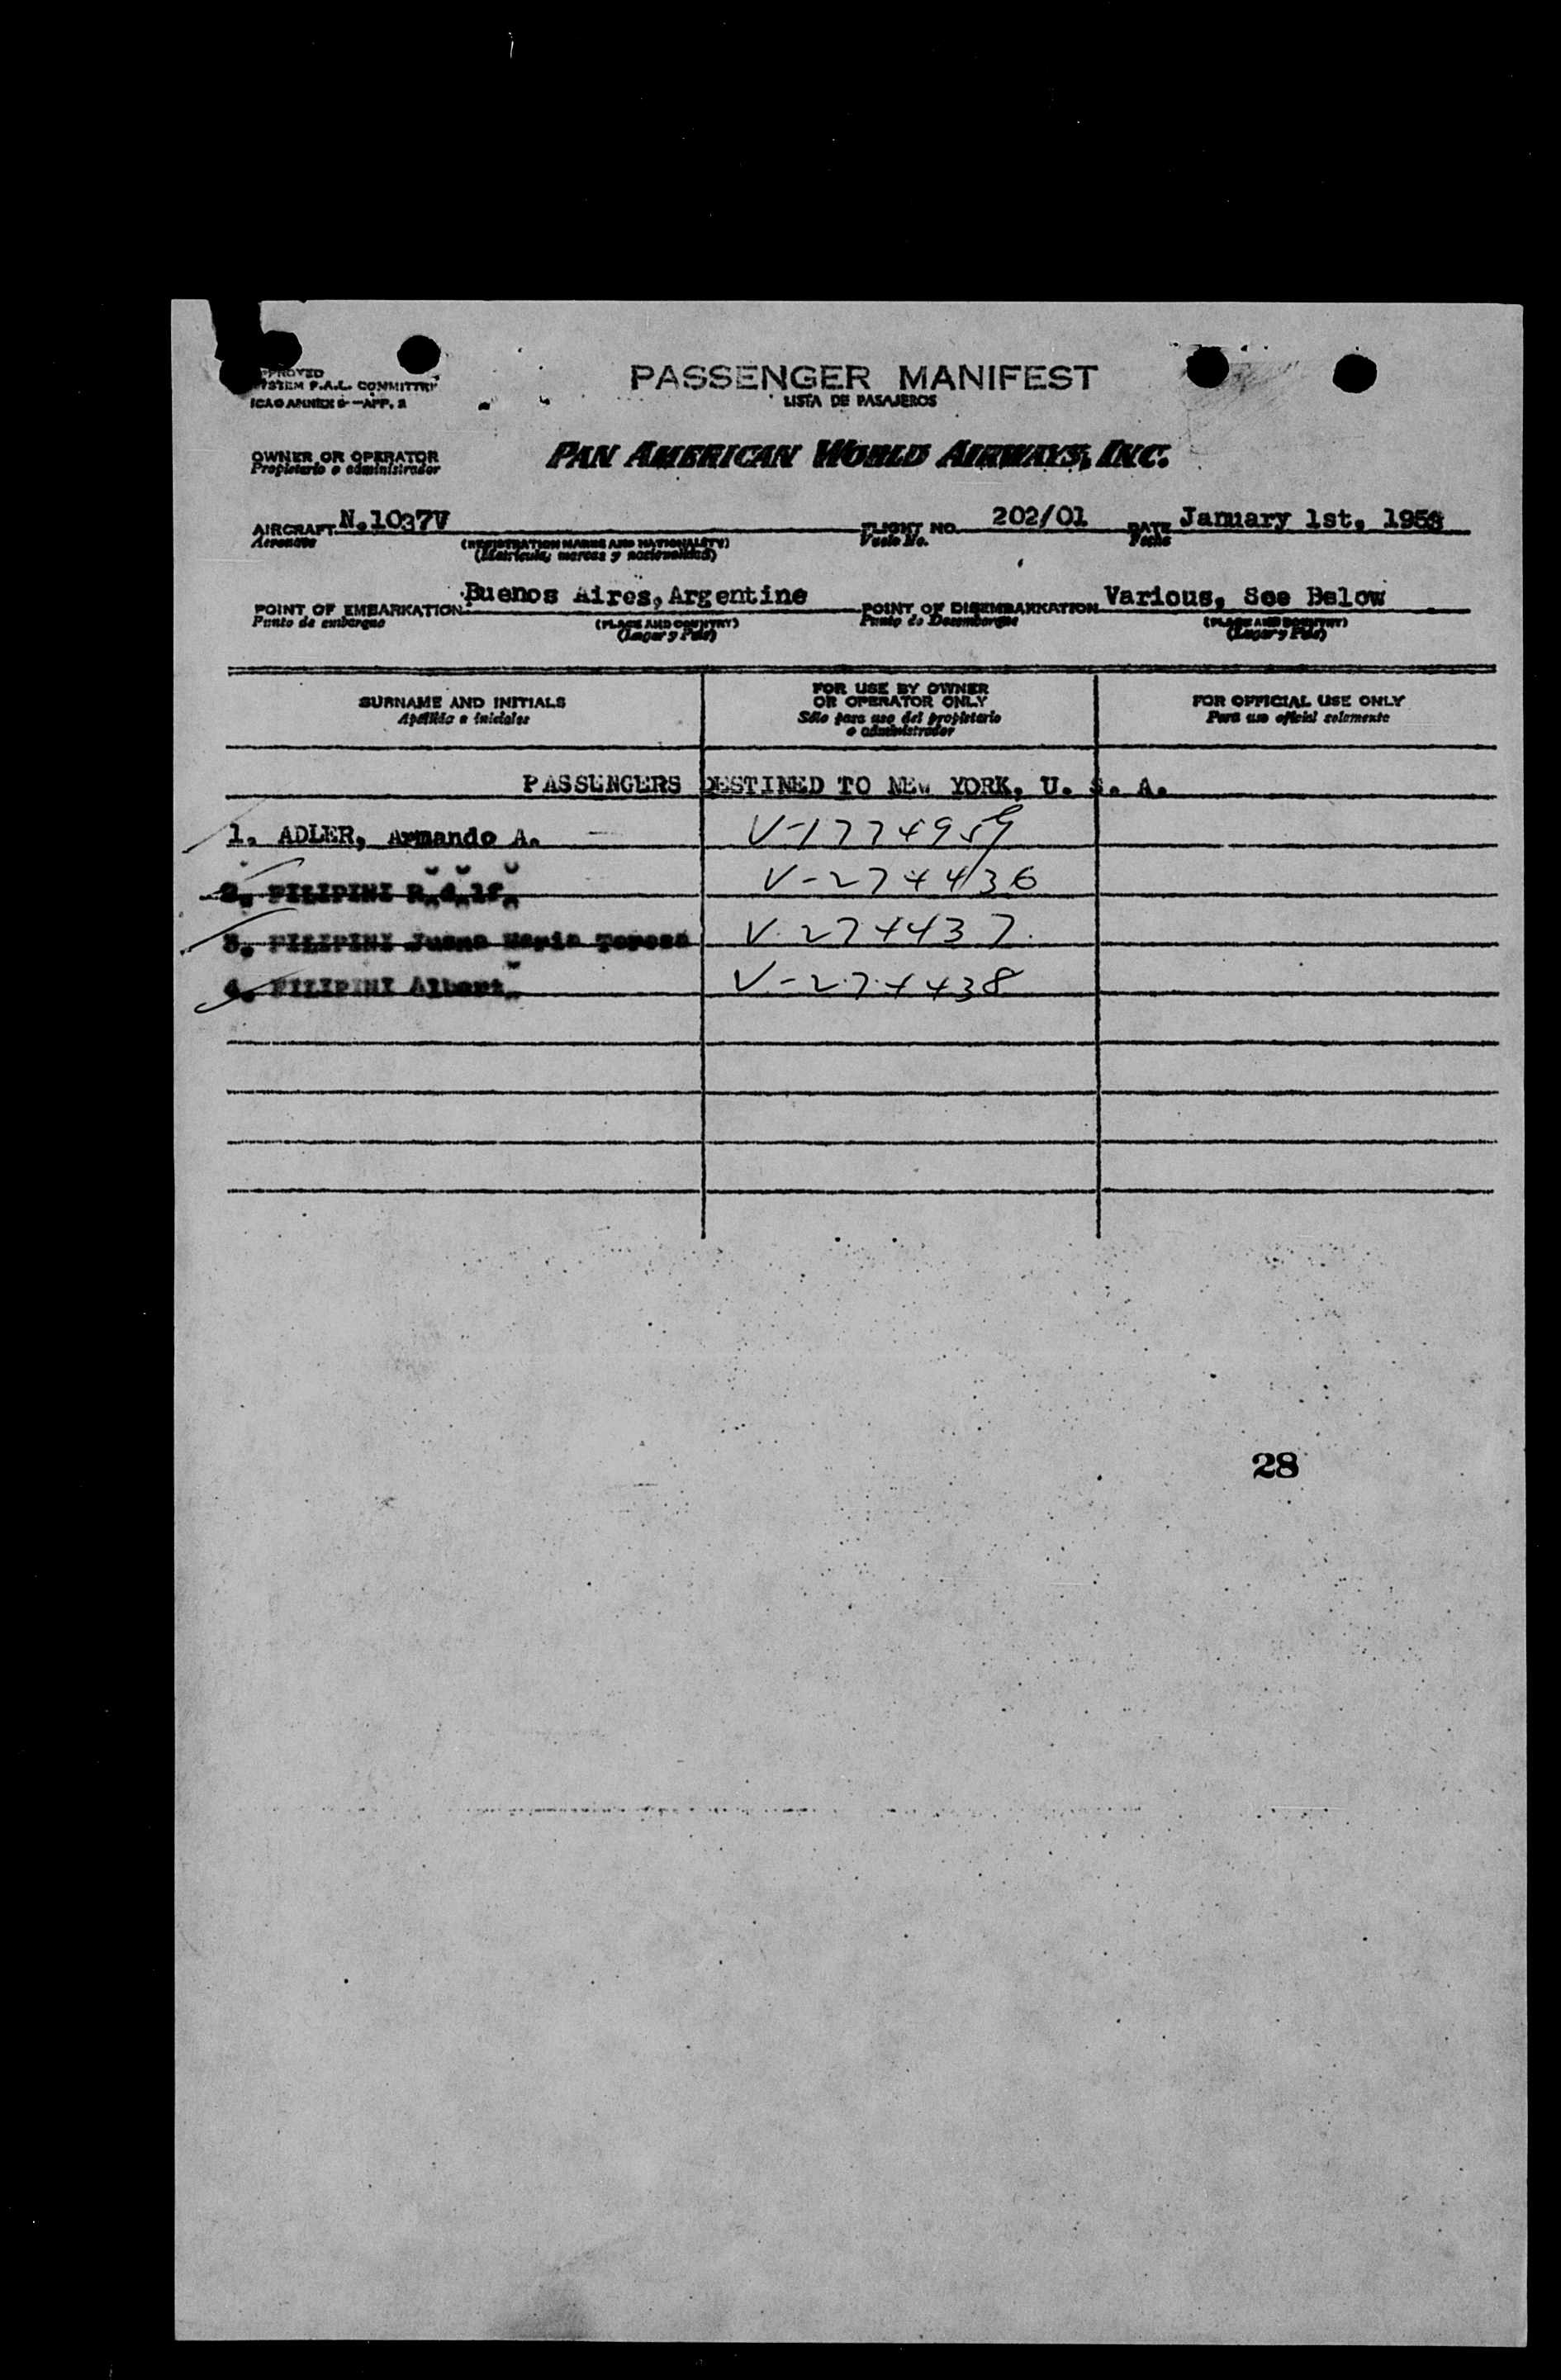 PROVED
SYSTEM F.A.L. COMMITTEE
ICAO ANNEX 9—APP. 2
PASSENGER MANIFEST
LISTA DE PASAJEROS
OWNER OR OPERATOR
Propietario o administrador
PAN AMERICAN WORLD AIRWAYS, INC.
AIRCRAFT N.1037V FLIGHT NO. 202/01 DATE January 1st, 1953
Aeronave (REGISTRATION MARKS AND NATIONALITY) Vuelo No. Fecha
(Matrícula, marcas y nacionalidad)
POINT OF EMBARKATION Buenos Aires, Argentine POINT OF DISEMBARKATION Various, See Below
Punto de embarque (PLACE AND COUNTRY) Punto de Desembarque (PLACE AND COUNTRY)
(Lugar y País) (Lugar y País)
SURNAME AND INITIALS
Apellido e iniciales
FOR USE BY OWNER
OR OPERATOR ONLY
Sólo para uso del propietario
o administrador
FOR OFFICIAL USE ONLY
Para uso oficial solamente
PASSENGERS DESTINED TO NEW YORK, U. S. A.
1. ADLER, Armando A. V-1774959
2. FILIPINI V-274436
3. FILIPINI Juana Maria Teresa V-274437.
4. FILIPINI Albert V-274438
28